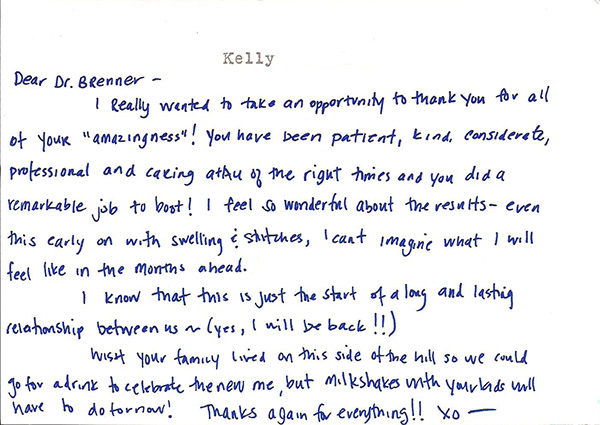 Kelly
Dear Dr. Brenner -
I Really wanted to take an opportunity to thank you for all
of your "amazingness"! You have been patient, kind, considerate,
professional and caring at all of the right times and you did a
remarkable job to boot! I feel so wonderful about the results - even
this early on with swelling & stitches, I cant imagine what I will
feel like in the months ahead.
I know that this is just the start of a long and lasting
relationship between us ~ (yes, I will be back!!)
Wish your family lived on this side of the hill so we could
go for a drink to celebrate the new me, but milkshakes with your kids will
have to do for now! Thanks again for everything!! XO —